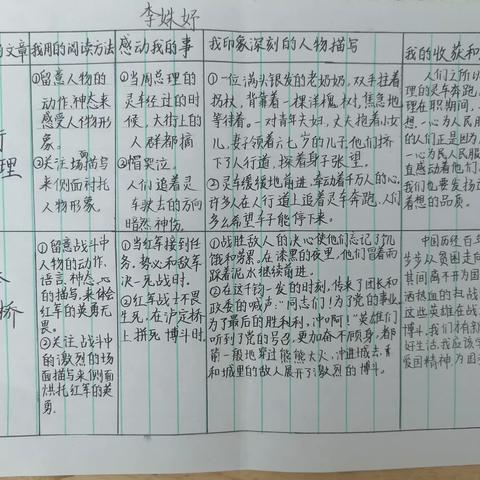 李姝妤
的文章
我用的阅读方法
感动我的事
我印象深刻的人物描写
我的收获和
行
理
①留意人物的
动作、神态来
感受人物形
象。
②关注场面描写
来侧面衬托
人物形象。
①当周总理的
灵车经过的时
候，大街上的
人群都摘
帽哭泣。
人们追着灵
车驶去的方向
暗然神伤。
①一位满头银发的老奶奶，双手拄着
拐杖，背靠着一棵洋槐树，焦急地
等待着。一对青年夫妇，丈夫抱着小女
儿，妻子领着六七岁的儿子，他们挤
下了人行道，探着身子张望。
②灵车缓缓地前进，牵动着千万人的心。
许多人在人行道上追着灵车奔跑，人们
多么希望车子能停下来。
人们之所以
理的灵车奔跑，
理在职期间，
想，一心为人民
的人们正是因为
一心为民人民服
直感动着他们，
我们也要发扬
着想的品质。
桥
①留意战斗中
人物的动作、
语言、神态、心
的描写，来体会
红军的英勇无
畏。
②关注战斗中
的激烈的场
面描写来侧面
烘托红军的英
勇。
①当红军接到任
务，势必和敌军
决一死战时。
②红军战士不畏
生死，在泸定桥上
上拼死博斗时。
①战胜敌人的决心使他们忘记了饥
饿和劳累。在漆黑的夜里，他们冒着雨
踩着泥水继续前进。
②在这千钧一发的时刻，传来了团长和
政委的喊声："同志们！为了党的事业，
为了最后的胜利，冲啊！"英雄们
听到了党的号召，更加奋不顾身，都
箭一般地穿过熊熊大火，冲进城去，
和城里的敌人展开了激烈的博斗。
中国历经百年
步步从贫困走向
其间离不开为国
洒热血的
这些英雄在战
博斗，我们才有
好生活，我应该
爱国精神，为国